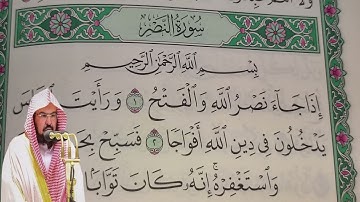 سُورَةُ النَّصْرِ
بِسْمِ اللَّهِ الرَّحْمَٰنِ الرَّحِيمِ
إِذَا جَآءَ نَصْرُ اللَّهِ وَالْفَتْحُ ١ وَرَأَيْتَ
يَدْخُلُونَ فِى دِينِ اللَّهِ أَفْوَاجًا ٢ فَسَبِّحْ
وَاسْتَغْفِرْهُ إِنَّهُ كَانَ تَوَّابًا